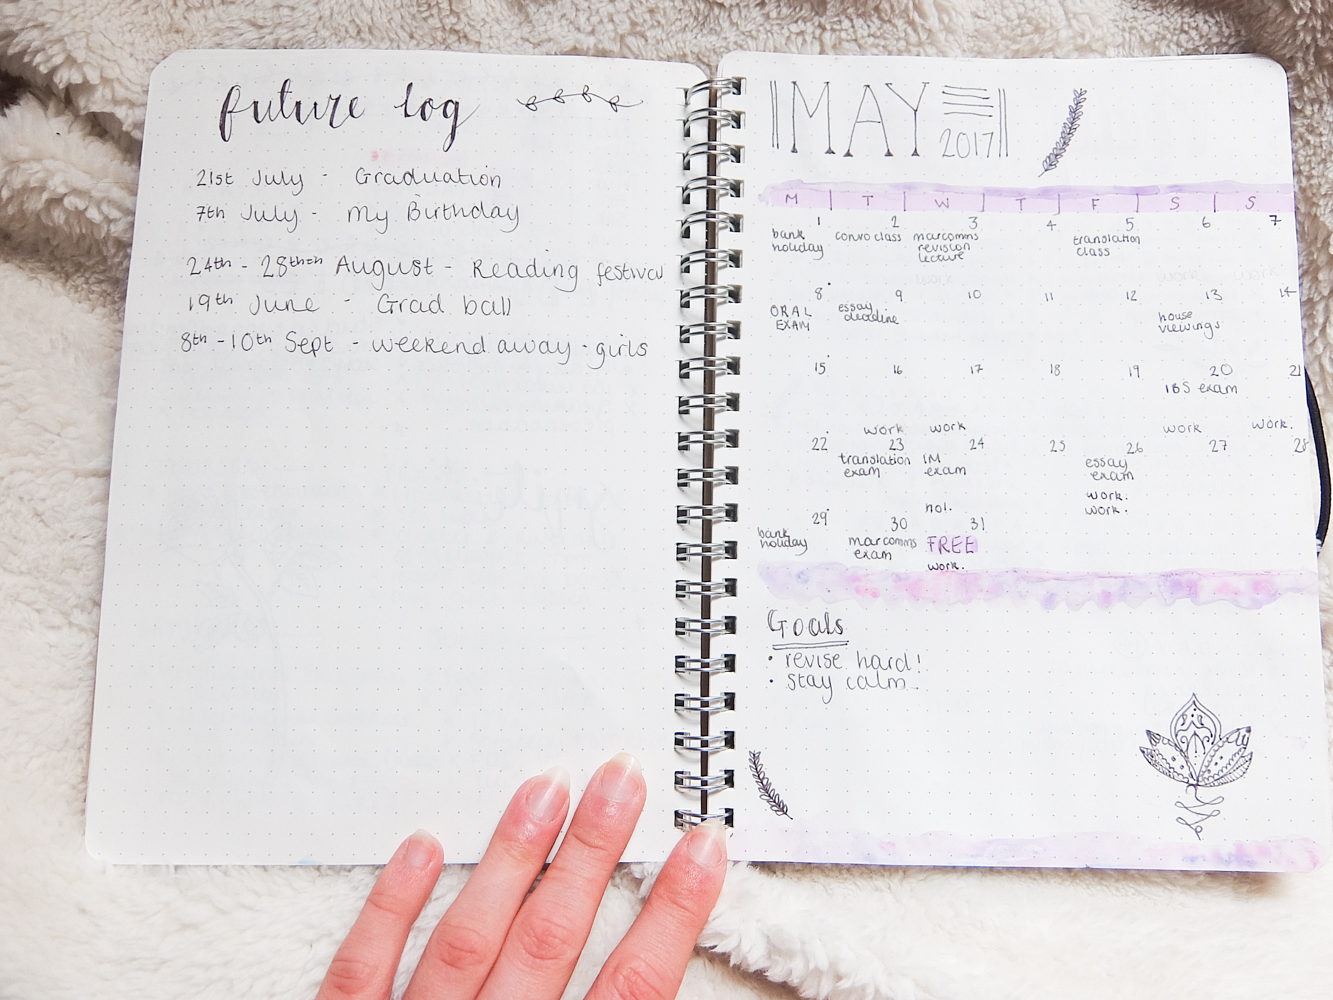 future log
21st July - Graduation
7th July - My Birthday
24th - 28th August - Reading festival
19th June - Grad ball
8th - 10th Sept - weekend away - girls
MAY
2017
M T W T F S S
1 2 3 4 5 6 7
bank
holiday
convo class
marcomms
revision
lecture
translation
class
8 9 10 11 12 13 14
ORAL
EXAM
essay
deadline
house
viewings
15 16 17 18 19 20 21
IBS exam
work work work work.
22 23 24 25 26 27 28
translation
exam
IM
exam
essay
exam
work.
work.
hol.
29 30 31
bank
holiday
marcomms
exam
FREE
work.
Goals
• revise hard!
• stay calm